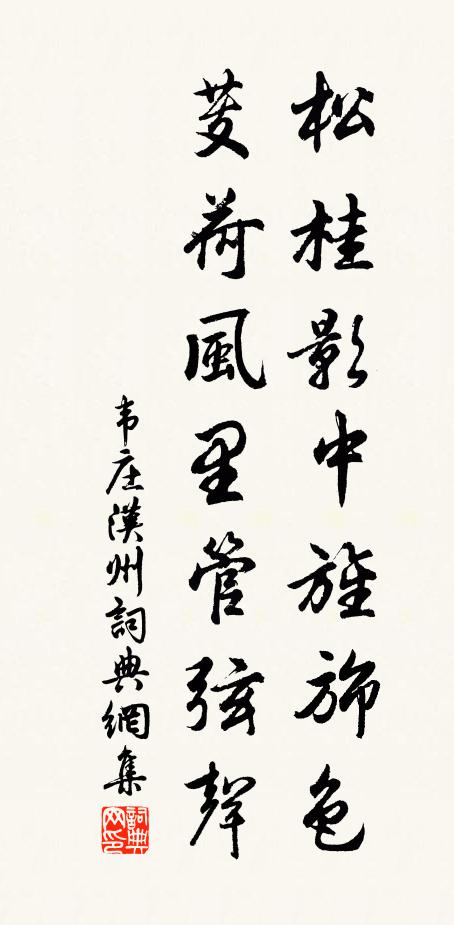 松桂影中旌旆色
芰荷風里管弦聲
韦庄漢州詞典網集
詞典网印